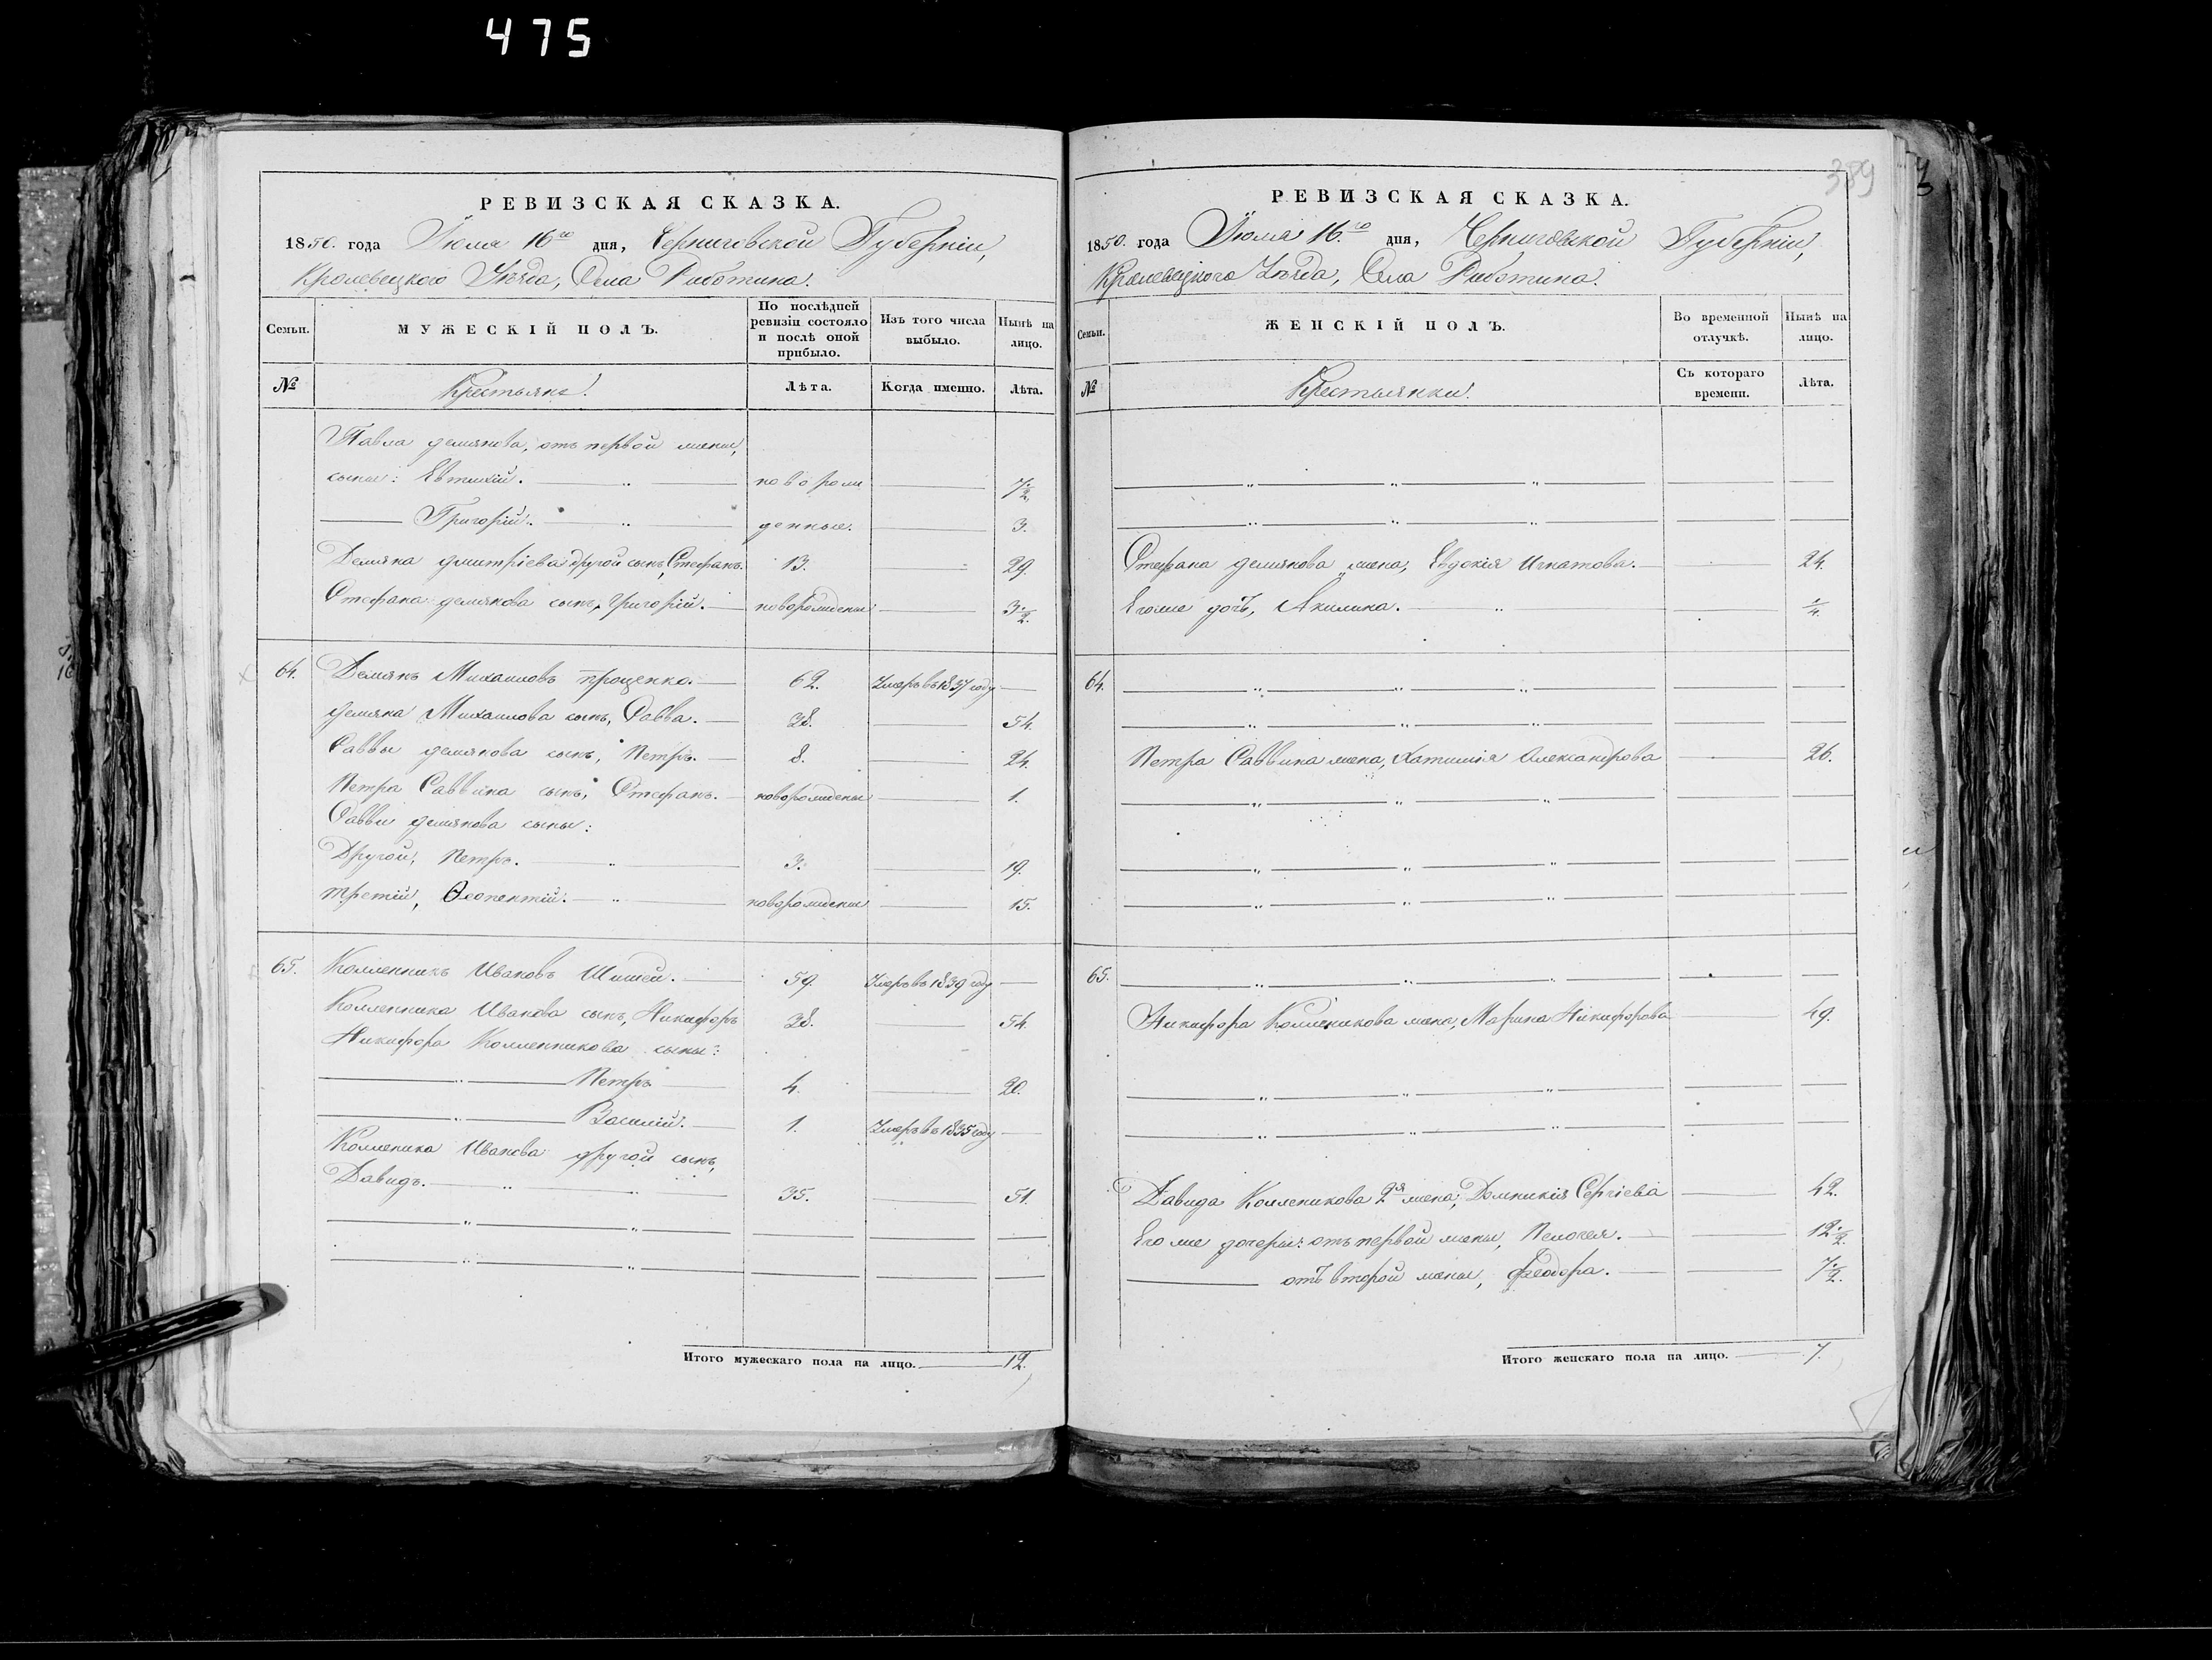 475
389
РЕВИЗСКАЯ СКАЗКА.
1850. года Іюля 16го дня, Черниговской Губерніи,
Кролевецкого Уѣзда, Села Работина.
Семьи. МУЖЕСКІЙ ПОЛЪ. По послѣдней ревизіи состояло и послѣ оной прибыло. Изъ того числа выбыло. Нынѣ на лицо.
№ Крестьяне. Лѣта. Когда именно. Лѣта.
Павла демянова, отъ первой жены,
сыны: Евтихій. новорож 7 1/2.
Григорій. денные. 3.
Демяна дмитріева другой сынъ, Стефанъ. 13. 29.
Стефана демянова сынъ, Григорій. новорожденый 3 1/2.
64. Демянъ Михаиловъ проценко. 62. Умеръ въ 1837 году
демяна Михаилова сынъ, Савва. 38. 54.
Саввы демянова сынъ, Петръ. 8. 24.
Петра Саввина сынъ, Стефанъ. новорожденый 1.
Саввы демянова сыны:
Другой, Петръ. 3. 19.
третій, Ѳеопентій. новорожденый 15.
65. Колленникъ Ивановъ Шишей. 59. Умеръ въ 1839 году
Колленника Иванова сынъ, Никифоръ 38. 54.
Никифора Колленникова сыны:
Петръ 4. 20.
Василій. 1. Умеръ въ 1835 году
Колленика Иванова другой сынъ,
Давидъ. 35. 51.
Итого мужескаго пола на лицо. 12.
РЕВИЗСКАЯ СКАЗКА.
1850. года Іюля 16.го дня, Черниговской Губерніи,
Кролевецкого Уѣзда, Села Работина.
Семьи. ЖЕНСКІЙ ПОЛЪ. Во временной отлучкѣ. Нынѣ на лицо.
№ Крестьянки. Съ котораго времени. Лѣта.
Стефана демянова жена, Евдокія Игнатова. 24.
Его же дочь, Акилина. 1/4.
64.
Петра Саввина жена, Александрова 26.
65.
Никифора Коллениkова жена, Марина Никифорова 49.
Давида Колленикова 2я жена, Домникія Сергіева 42.
Его же дочери: отъ первой жены, Пелогея. 12 1/2.
отъ второй жены, Феодора. 7 1/2.
Итого женскаго пола на лицо. 7.